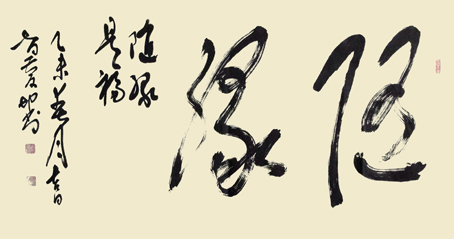 随
缘
随缘
是福
乙未春月吉日